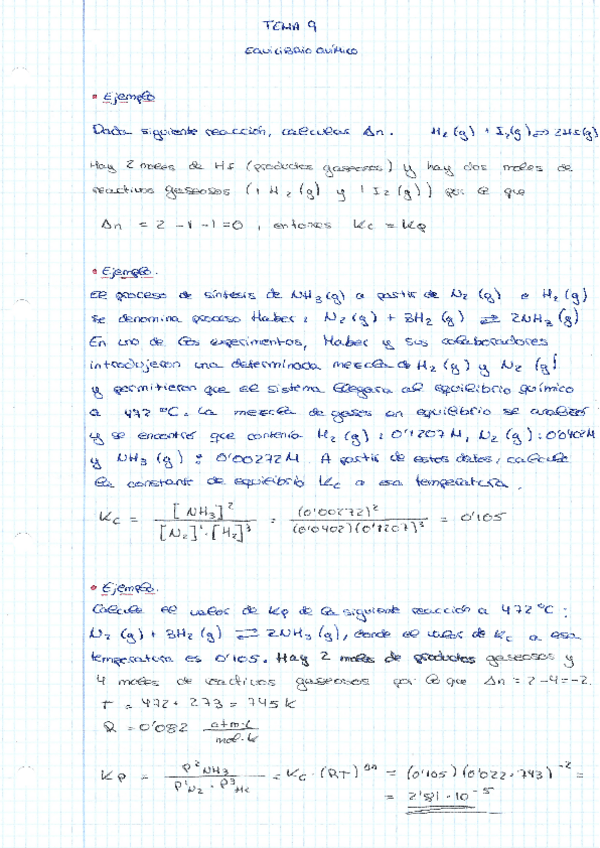 TEMA 9
EQUILIBRIO QUÍMICO
• Ejemplo
Dada siguiente reacción, calcular Δn. H₂ (g) + I₂(g) ⇌ 2HI(g)
Hay 2 moles de HI (productos gaseosos) y hay dos moles de
reactivos gaseosos (1 H₂(g) y 1 I₂(g)) por lo que
Δn = 2 -1 -1 = 0, entonces Kc = Kp
• Ejemplo.
El proceso de síntesis de NH₃(g) a partir de N₂ (g) e H₂(g)
se denomina proceso Haber: N₂(g) + 3H₂(g) ⇌ 2NH₃(g)
En uno de los experimentos, Haber y sus colaboradores
introdujeron una determinada mezcla de H₂(g) y N₂ (g)
y permitieron que el sistema llegara al equilibrio químico
a 472 ºC. La mezcla de gases en equilibrio se analizó
y se encontró que contenía H₂(g): 0'1207M, N₂(g): 0'0402M
y NH₃(g): 0'00272M. A partir de estos datos, calcule
la constante de equilibrio Kc a esa temperatura.
Kc = [NH₃]² / [N₂]¹·[H₂]³ = (0'00272)² / (0'0402)(0'1207)³ = 0'105
• Ejemplo.
Calcule el valor de Kp de la siguiente reacción a 472ºC:
N₂(g) + 3H₂(g) ⇌ 2NH₃(g), donde el valor de Kc a esa
temperatura es 0'105. Hay 2 moles de productos gaseosos y
4 moles de reactivos gaseosos por lo que Δn = 2-4=-2.
T = 472 + 273 = 745 k
R = 0'082 atm·L / mol·k
Kp = P²NH₃ / P¹N₂ · P³H₂ = Kc · (RT)^Δn = (0'105)(0'022·743)⁻² =
= 2'81 · 10⁻⁵